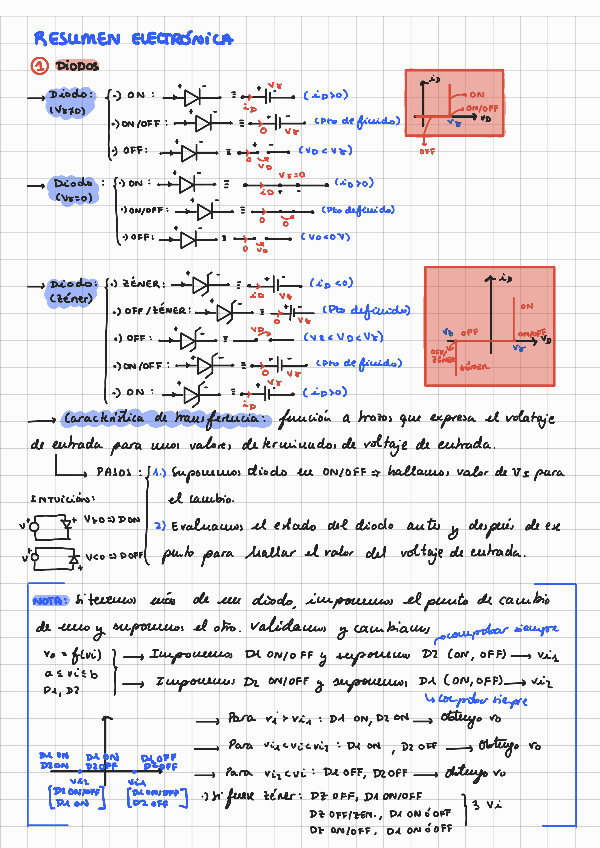 RESUMEN ELECTRÓNICA
1 DIODOS
→ Diodo: (Vγ≠0)
·) ON: ≡ + - Vγ iD (iD>0)
·) ON/OFF: ≡ + - 0 Vγ (Pto definido)
·) OFF: ≡ + - 0 VD (VD<Vγ)
iD ON ON/OFF Vγ VD OFF
→ Diodo: (Vγ=0)
·) ON: ≡ Vγ=0 iD + - (iD>0)
·) ON/OFF: ≡ 0 0 (Pto definido)
·) OFF: ≡ 0 VD (VD<0V)
→ Diodo: (Zéner)
·) ZÉNER: ≡ + - iD Vz (iD<0)
·) OFF/ZÉNER: ≡ + - 0 Vz (Pto definido)
·) OFF: ≡ VD 0 (Vz<VD<Vγ)
·) ON/OFF: ≡ + - 0 Vγ (Pto definido)
·) ON: ≡ + - Vγ iD (iD>0)
iD ON Vz OFF ON/OFF VD OFF/ZÉNER Vγ ZÉNER
→ Característica de transferencia: función a trozos que expresa el volataje
de entrada para unos valores determinados de voltaje de entrada.
PASOS: 1.) Suponemos diodo en ON/OFF ⇒ hallamos valor de VI para
el cambio.
2) Evaluamos el estado del diodo antes y después de ese
punto para hallar el valor del voltaje de entrada.
INTUICIÓN:
V + V>0 ⇒ D ON
V + V<0 ⇒ D OFF
NOTA: Si tenemos más de un diodo, imponemos el punto de cambio
de uno y suponemos el otro. Validamos y cambiamos
comprobar siempre
vo = f(vi)
a ≤ vi ≤ b
D1, D2
→ Imponemos D1 ON/OFF y suponemos D2 (ON, OFF) → vi1
→ Imponemos D2 ON/OFF y suponemos D1 (ON, OFF) → vi2
comprobar siempre
→ Para vi1 > vi : D1 ON, D2 ON → Obtengo vo
→ Para vi1<vi<vi2 : D1 ON, D2 OFF → Obtengo vo
→ Para vi2<vi : D1 OFF, D2 OFF → obtengo vo
D1 ON D2 ON
D1 ON D2 OFF
D1 OFF D2 OFF
vi2 vi1
[D2 ON/OFF D1 ON]
[D1 ON/OFF D2 OFF]
·) Si fuese zéner: DZ OFF, D1 ON/OFF
DZ OFF/ZEN., D1 ON ó OFF
DZ ON/OFF, D1 ON ó OFF
3 vi